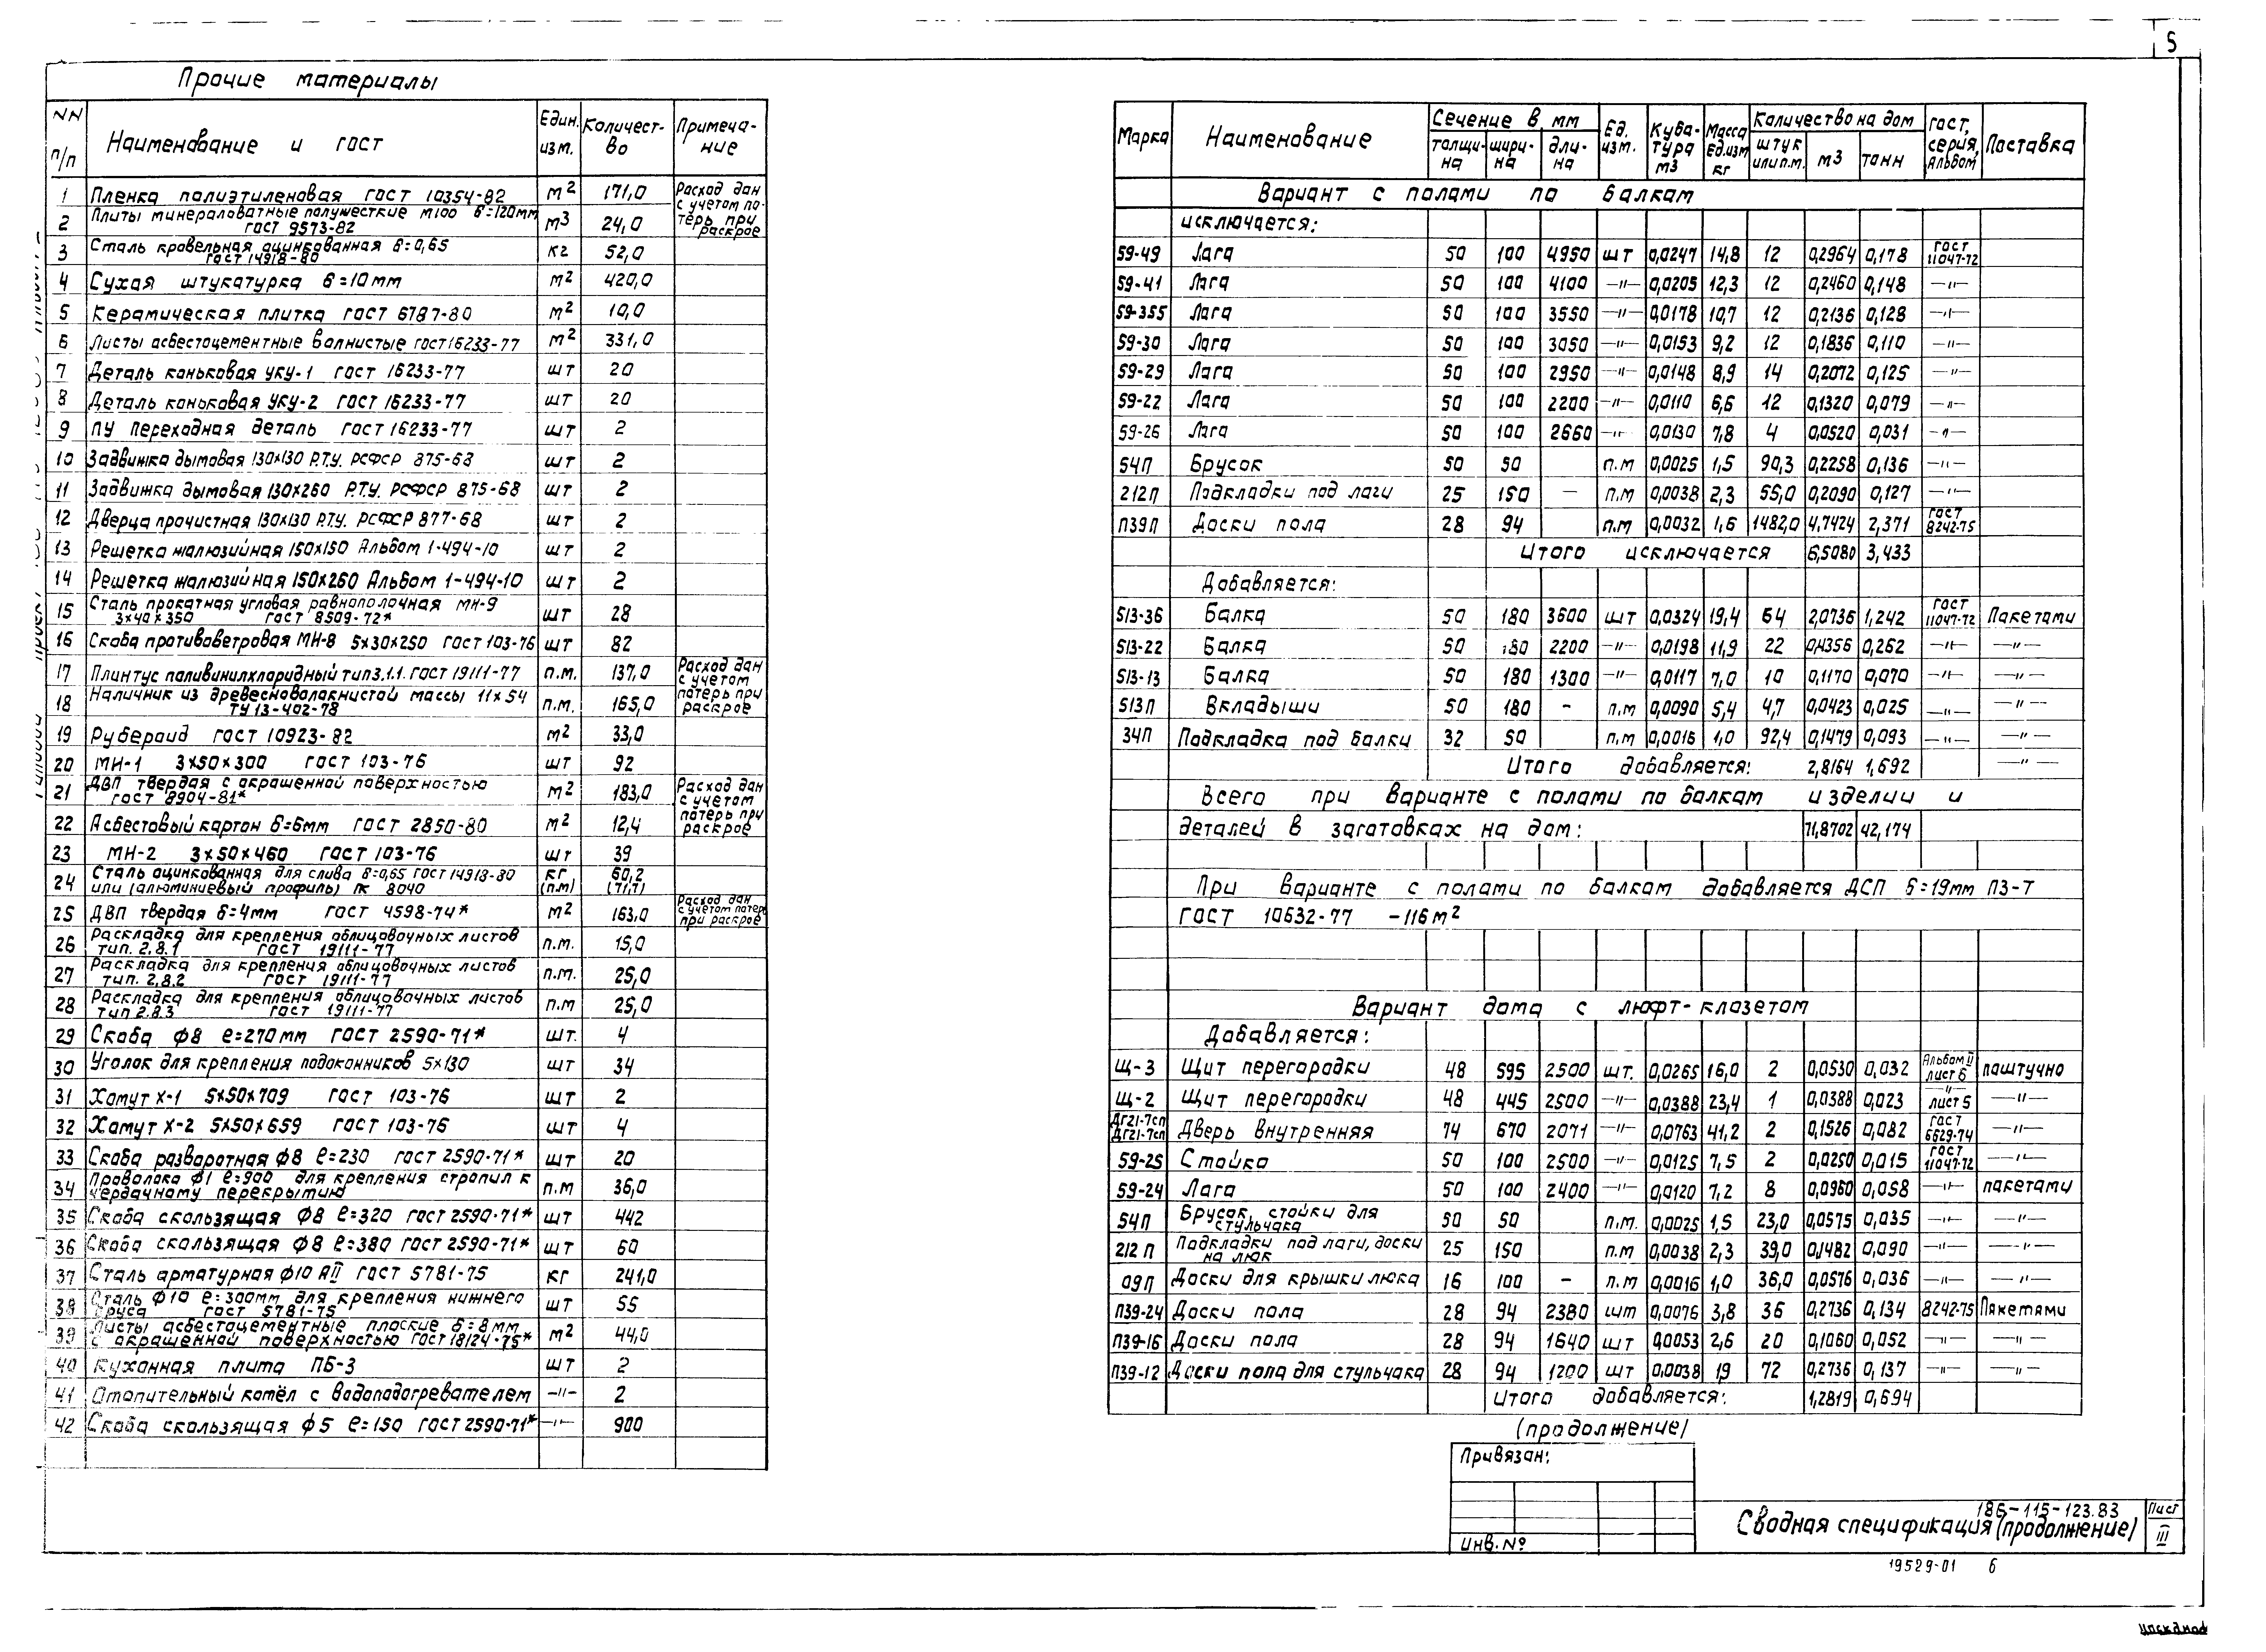 5
Прочие материалы
NN п/п Наименование и ГОСТ Един. изм. Количество Примечание
1 Пленка полиэтиленовая ГОСТ 10354-82 м² 171,0 Расход дан с учетом потерь при раскрое
2 Плиты минераловатные полужесткие М100 б=120мм ГОСТ 9573-82 м³ 24,0
3 Сталь кровельная оцинкованная б=0,65 ГОСТ 14918-80 кг 52,0
4 Сухая штукатурка б=10мм м² 420,0
5 Керамическая плитка ГОСТ 6787-80 м² 10,0
6 Листы асбестоцементные волнистые ГОСТ 16233-77 м² 331,0
7 Деталь коньковая УКУ-1 ГОСТ 16233-77 шт 20
8 Деталь коньковая УКУ-2 ГОСТ 16233-77 шт 20
9 ПУ переходная деталь ГОСТ 16233-77 шт 2
10 Задвижка дымовая 130х130 Р.Т.У. РСФСР 875-68 шт 2
11 Задвижка дымовая 130х260 Р.Т.У. РСФСР 875-68 шт 2
12 Дверца прочистная 130х130 Р.Т.У. РСФСР 877-68 шт 2
13 Решетка жалюзийная 150х150 Альбом 1-494-10 шт 2
14 Решетка жалюзийная 150х260 Альбом 1-494-10 шт 2
15 Сталь прокатная угловая равнополочная МН-9 3х40х350 ГОСТ 8509-72* шт 28
16 Скоба противоветровая МН-8 5х30х250 ГОСТ 103-76 шт 82
17 Плинтус поливинилхлоридный тип 3.1.1. ГОСТ 19111-77 п.м. 137,0 Расход дан с учетом потерь при раскрое
18 Наличник из древесноволокнистой массы 11х54 ТУ 13-402-78 п.м. 165,0
19 Рубероид ГОСТ 10923-82 м² 33,0
20 МН-1 3х50х300 ГОСТ 103-76 шт 92
21 ДВП твердая с окрашенной поверхностью ГОСТ 8904-81* м² 183,0 Расход дан с учетом потерь при раскрое
22 Асбестовый картон б=6мм ГОСТ 2850-80 м² 12,4
23 МН-2 3х50х460 ГОСТ 103-76 шт 39
24 Сталь оцинкованная для слива б=0,65 ГОСТ 14918-80 или (алюминиевый профиль) ПК 8040 кг (п.м) 60,2 (71,7)
25 ДВП твердая б=4мм ГОСТ 4598-74* м² 163,0 Расход дан с учетом потерь при раскрое
26 Раскладка для крепления облицовочных листов тип. 2.8.1 ГОСТ 19111-77 п.м. 15,0
27 Раскладка для крепления облицовочных листов тип. 2.8.2 ГОСТ 19111-77 п.м. 25,0
28 Раскладка для крепления облицовочных листов тип 2.8.3 ГОСТ 19111-77 п.м 25,0
29 Скоба ф8 ℓ=270мм ГОСТ 2590-71* шт. 4
30 Уголок для крепления подоконников 5х130 шт 34
31 Хомут Х-1 5х50х709 ГОСТ 103-76 шт 2
32 Хомут Х-2 5х50х659 ГОСТ 103-76 шт 4
33 Скоба разворотная ф8 ℓ=230 ГОСТ 2590-71* шт 20
34 Проволока ф1 ℓ=900 для крепления стропил к чердачному перекрытию п.м 36,0
35 Скоба скользящая ф8 ℓ=320 ГОСТ 2590-71* шт 442
36 Скоба скользящая ф8 ℓ=380 ГОСТ 2590-71* шт 60
37 Сталь арматурная ф10 АII ГОСТ 5781-75 кг 241,0
38 Сталь ф10 ℓ=300мм для крепления нижнего бруса ГОСТ 5781-75 шт 55
39 Листы асбестоцементные плоские б=8мм с окрашенной поверхностью ГОСТ 18124-75* м² 44,0
40 Кухонная плита ПБ-3 шт 2
41 Отопительный котёл с водоподогревателем —"— 2
42 Скоба скользящая ф5 ℓ=150 ГОСТ 2590-71* —"— 900
Марка Наименование Сечение в мм толщина ширина длина Ед. изм. Кубатура м3 Масса Ед.изм кг Количество на дом штук или п.м. м3 тонн ГОСТ, серия, Альбом Поставка
Вариант с полами по балкам
исключается:
59-49 Лага 50 100 4950 шт 0,0247 14,8 12 0,2964 0,178 ГОСТ 11047-72
59-41 Лага 50 100 4100 —"— 0,0205 12,3 12 0,2460 0,148 —"—
59-355 Лага 50 100 3550 —"— 0,0178 10,7 12 0,2136 0,128 —"—
59-30 Лага 50 100 3050 —"— 0,0153 9,2 12 0,1836 0,110 —"—
59-29 Лага 50 100 2950 —"— 0,0148 8,9 14 0,2072 0,125 —"—
59-22 Лага 50 100 2200 —"— 0,0110 6,6 12 0,1320 0,079 —"—
59-26 Лага 50 100 2660 —"— 0,0130 7,8 4 0,0520 0,031 —"—
54П Брусок 50 50 п.м 0,0025 1,5 90,3 0,2258 0,136 —"—
212П Подкладки под лаги 25 150 — п.м 0,0038 2,3 55,0 0,2090 0,127 —"—
П39П Доски пола 28 94 п.м 0,0032 1,6 1482,0 4,7424 2,371 ГОСТ 8242-75
Итого исключается 6,5080 3,433
Добавляется:
513-36 Балка 50 180 3600 шт 0,0324 19,4 64 2,0736 1,242 ГОСТ 11047-72 Пакетами
513-22 Балка 50 180 2200 —"— 0,0198 11,9 22 0,4356 0,262 —"— —"—
513-13 Балка 50 180 1300 —"— 0,0117 7,0 10 0,1170 0,070 —"— —"—
513П Вкладыши 50 180 - п.м 0,0090 5,4 4,7 0,0423 0,025 —"— —"—
34П Подкладка под балки 32 50 п.м 0,0016 1,0 92,4 0,1479 0,093 —"— —"—
Итого добавляется: 2,8164 1,692 —"—
Всего при варианте с полами по балкам изделии и
деталей в заготовках на дом: 71,8702 42,174
При варианте с полами по балкам добавляется ДСП б=19мм ПЗ-Т
ГОСТ 10632-77 -116м²
Вариант дома с люфт-клозетом
Добавляется:
Щ-3 Щит перегородки 48 595 2500 шт. 0,0265 16,0 2 0,0530 0,032 Альбом II лист 6 поштучно
Щ-2 Щит перегородки 48 445 2500 —"— 0,0388 23,4 1 0,0388 0,023 —"— лист 5 —"—
ДГ21-7сп ДГ21-7сп Дверь внутренняя 74 670 2071 —"— 0,0763 41,2 2 0,1526 0,082 ГОСТ 6629-74 —"—
59-25 Стойка 50 100 2500 —"— 0,0125 7,5 2 0,0250 0,015 ГОСТ 11047-72 —"—
59-24 Лага 50 100 2400 —"— 0,0120 7,2 8 0,0960 0,058 —"— пакетами
54П Брусок, стойки для стульчака 50 50 п.м. 0,0025 1,5 23,0 0,0575 0,035 —"— —"—
212 П Подкладки под лаги, доски на люк 25 150 п.м 0,0038 2,3 39,0 0,1482 0,090 —"— —"—
09П Доски для крышки люка 16 100 - п.м 0,0016 1,0 36,0 0,0576 0,036 —"— —"—
П39-24 Доски пола 28 94 2380 шт 0,0076 3,8 36 0,2736 0,134 8242-75 Пакетами
П39-16 Доски пола 28 94 1640 шт 0,0053 2,6 20 0,1060 0,052 —"— —"—
П39-12 Доски пола для стульчака 28 94 1200 шт 0,0038 1,9 72 0,2736 0,137 —"— —"—
Итого добавляется: 1,2819 0,694
(продолжение)
Привязан:
Инв. №
186-115-123.83
Сводная спецификация (продолжение)
Лист III
19529-01 6